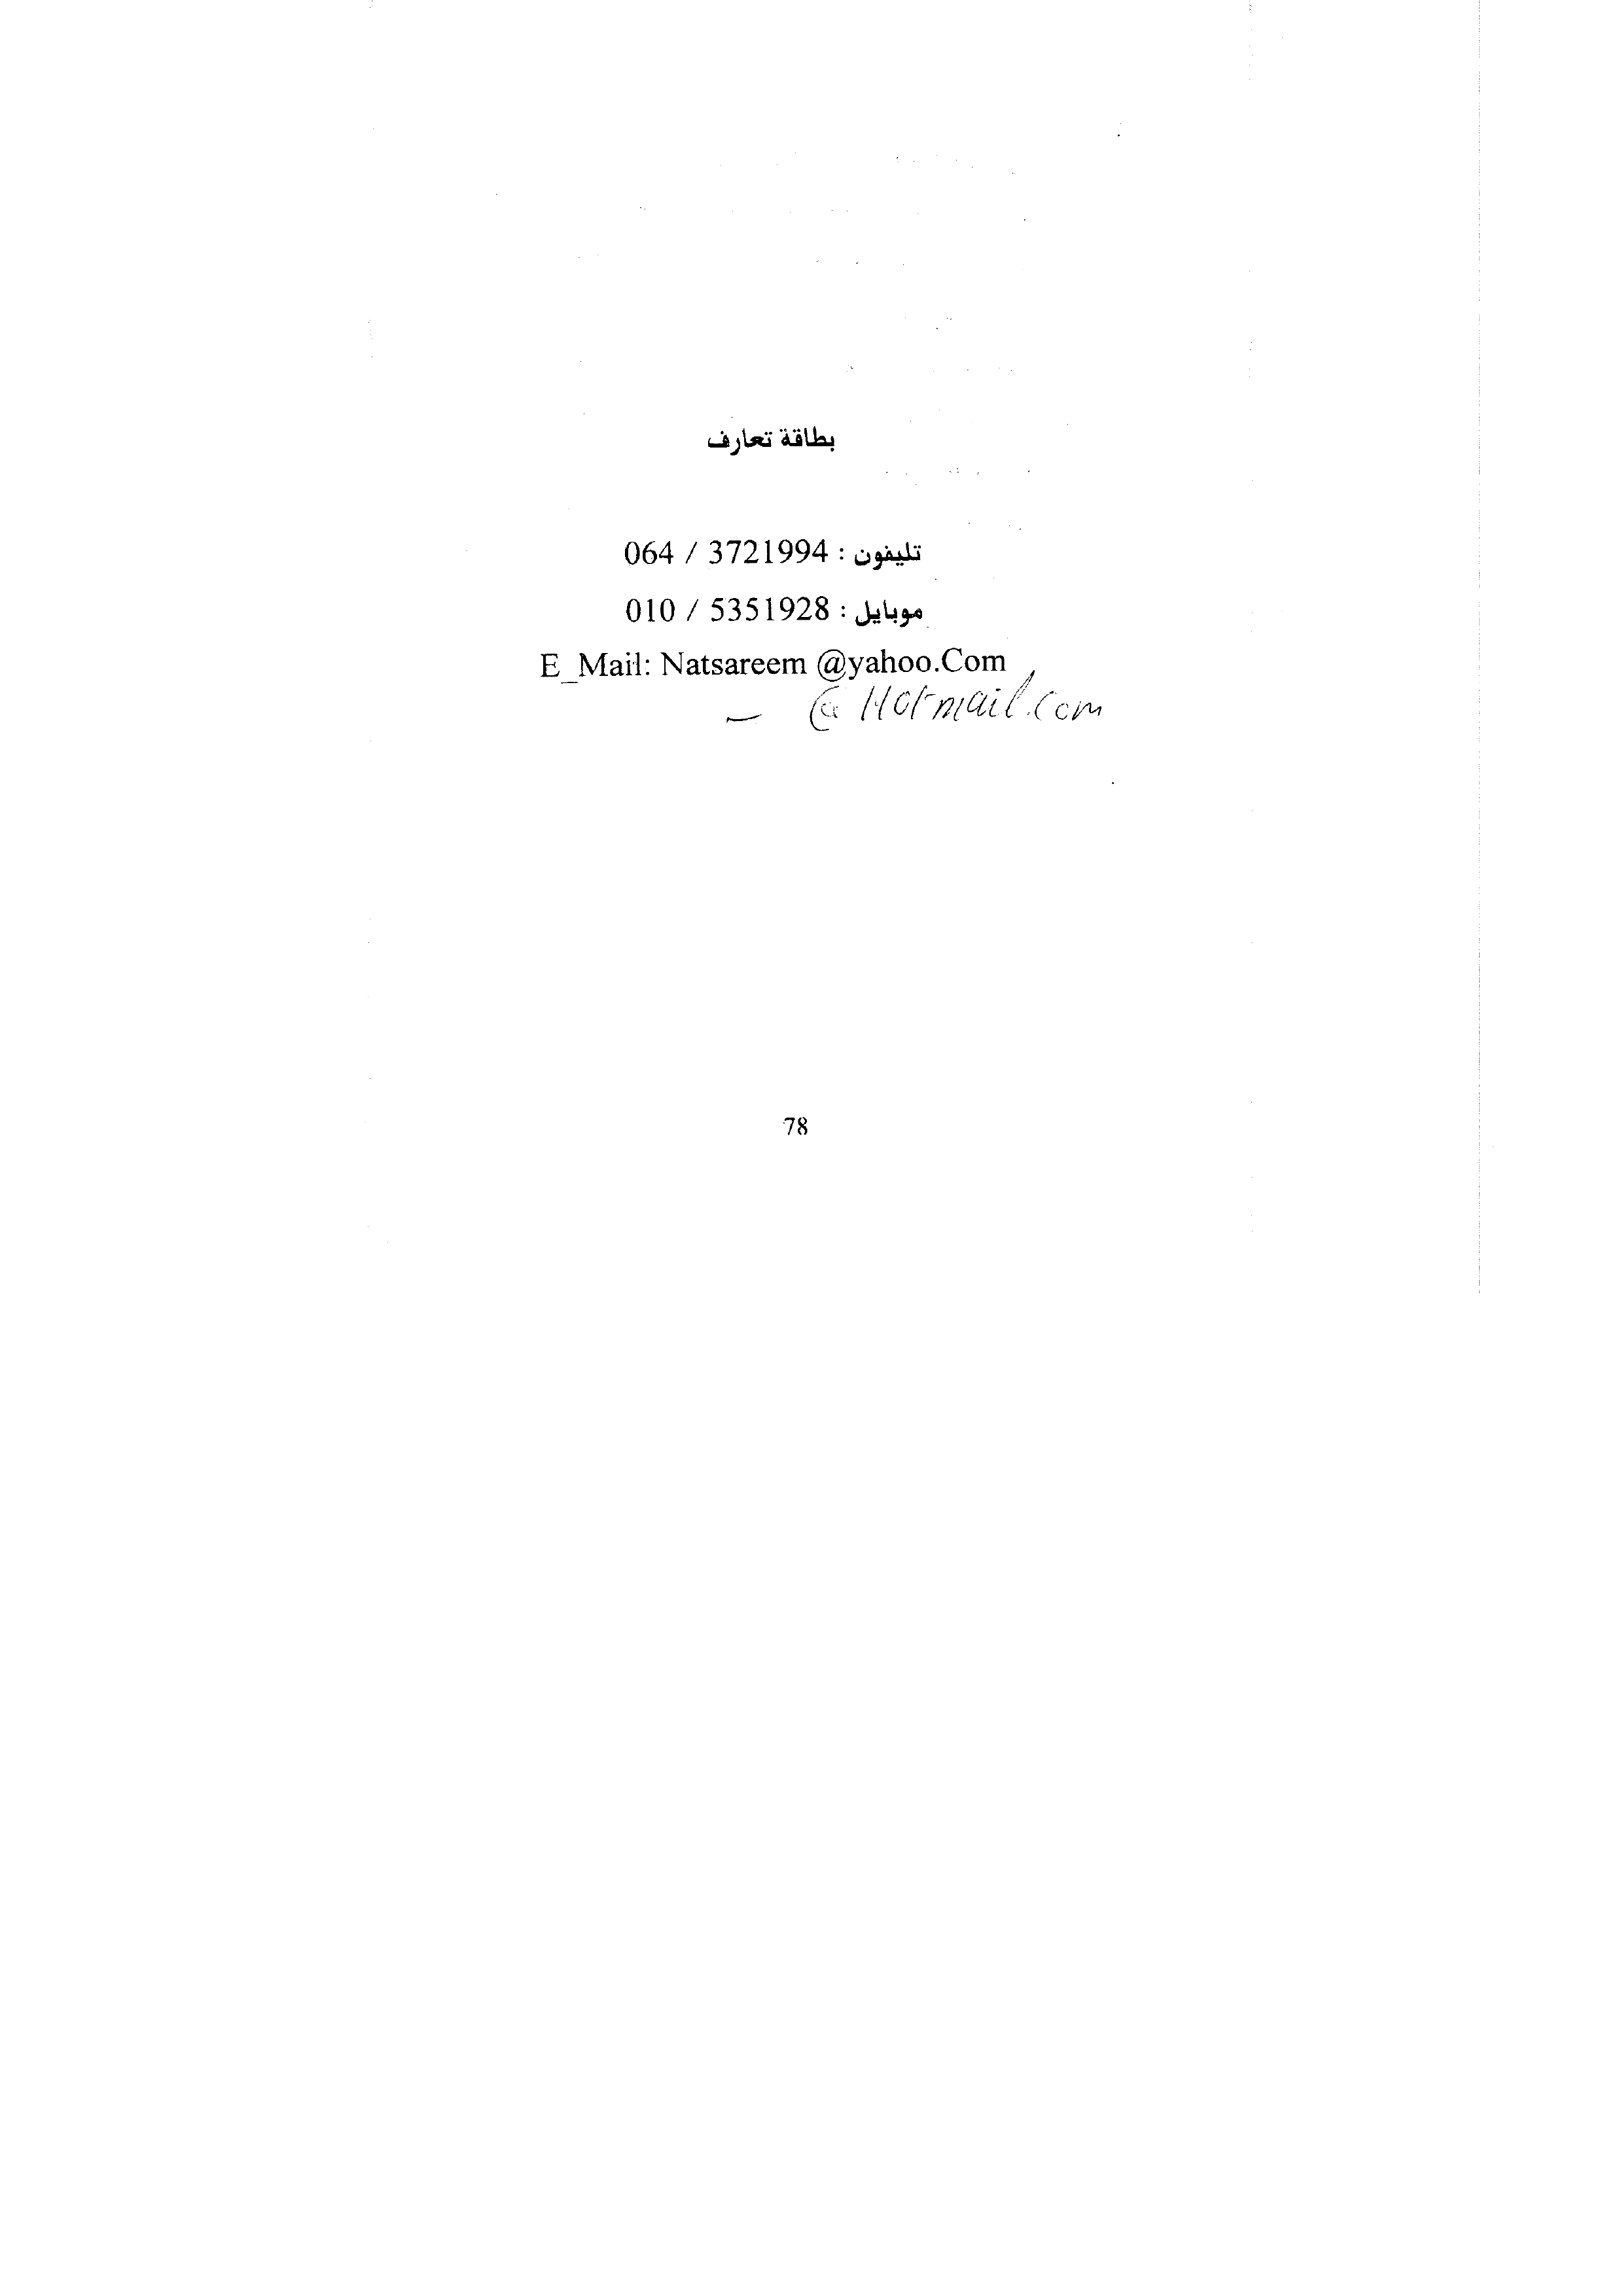 بطاقة تعارف
تليفون : 3721994 / 064
موبايل : 5351928 / 010
E_Mail: Natsareem @yahoo.Com
— @ Hotmail.Com
78